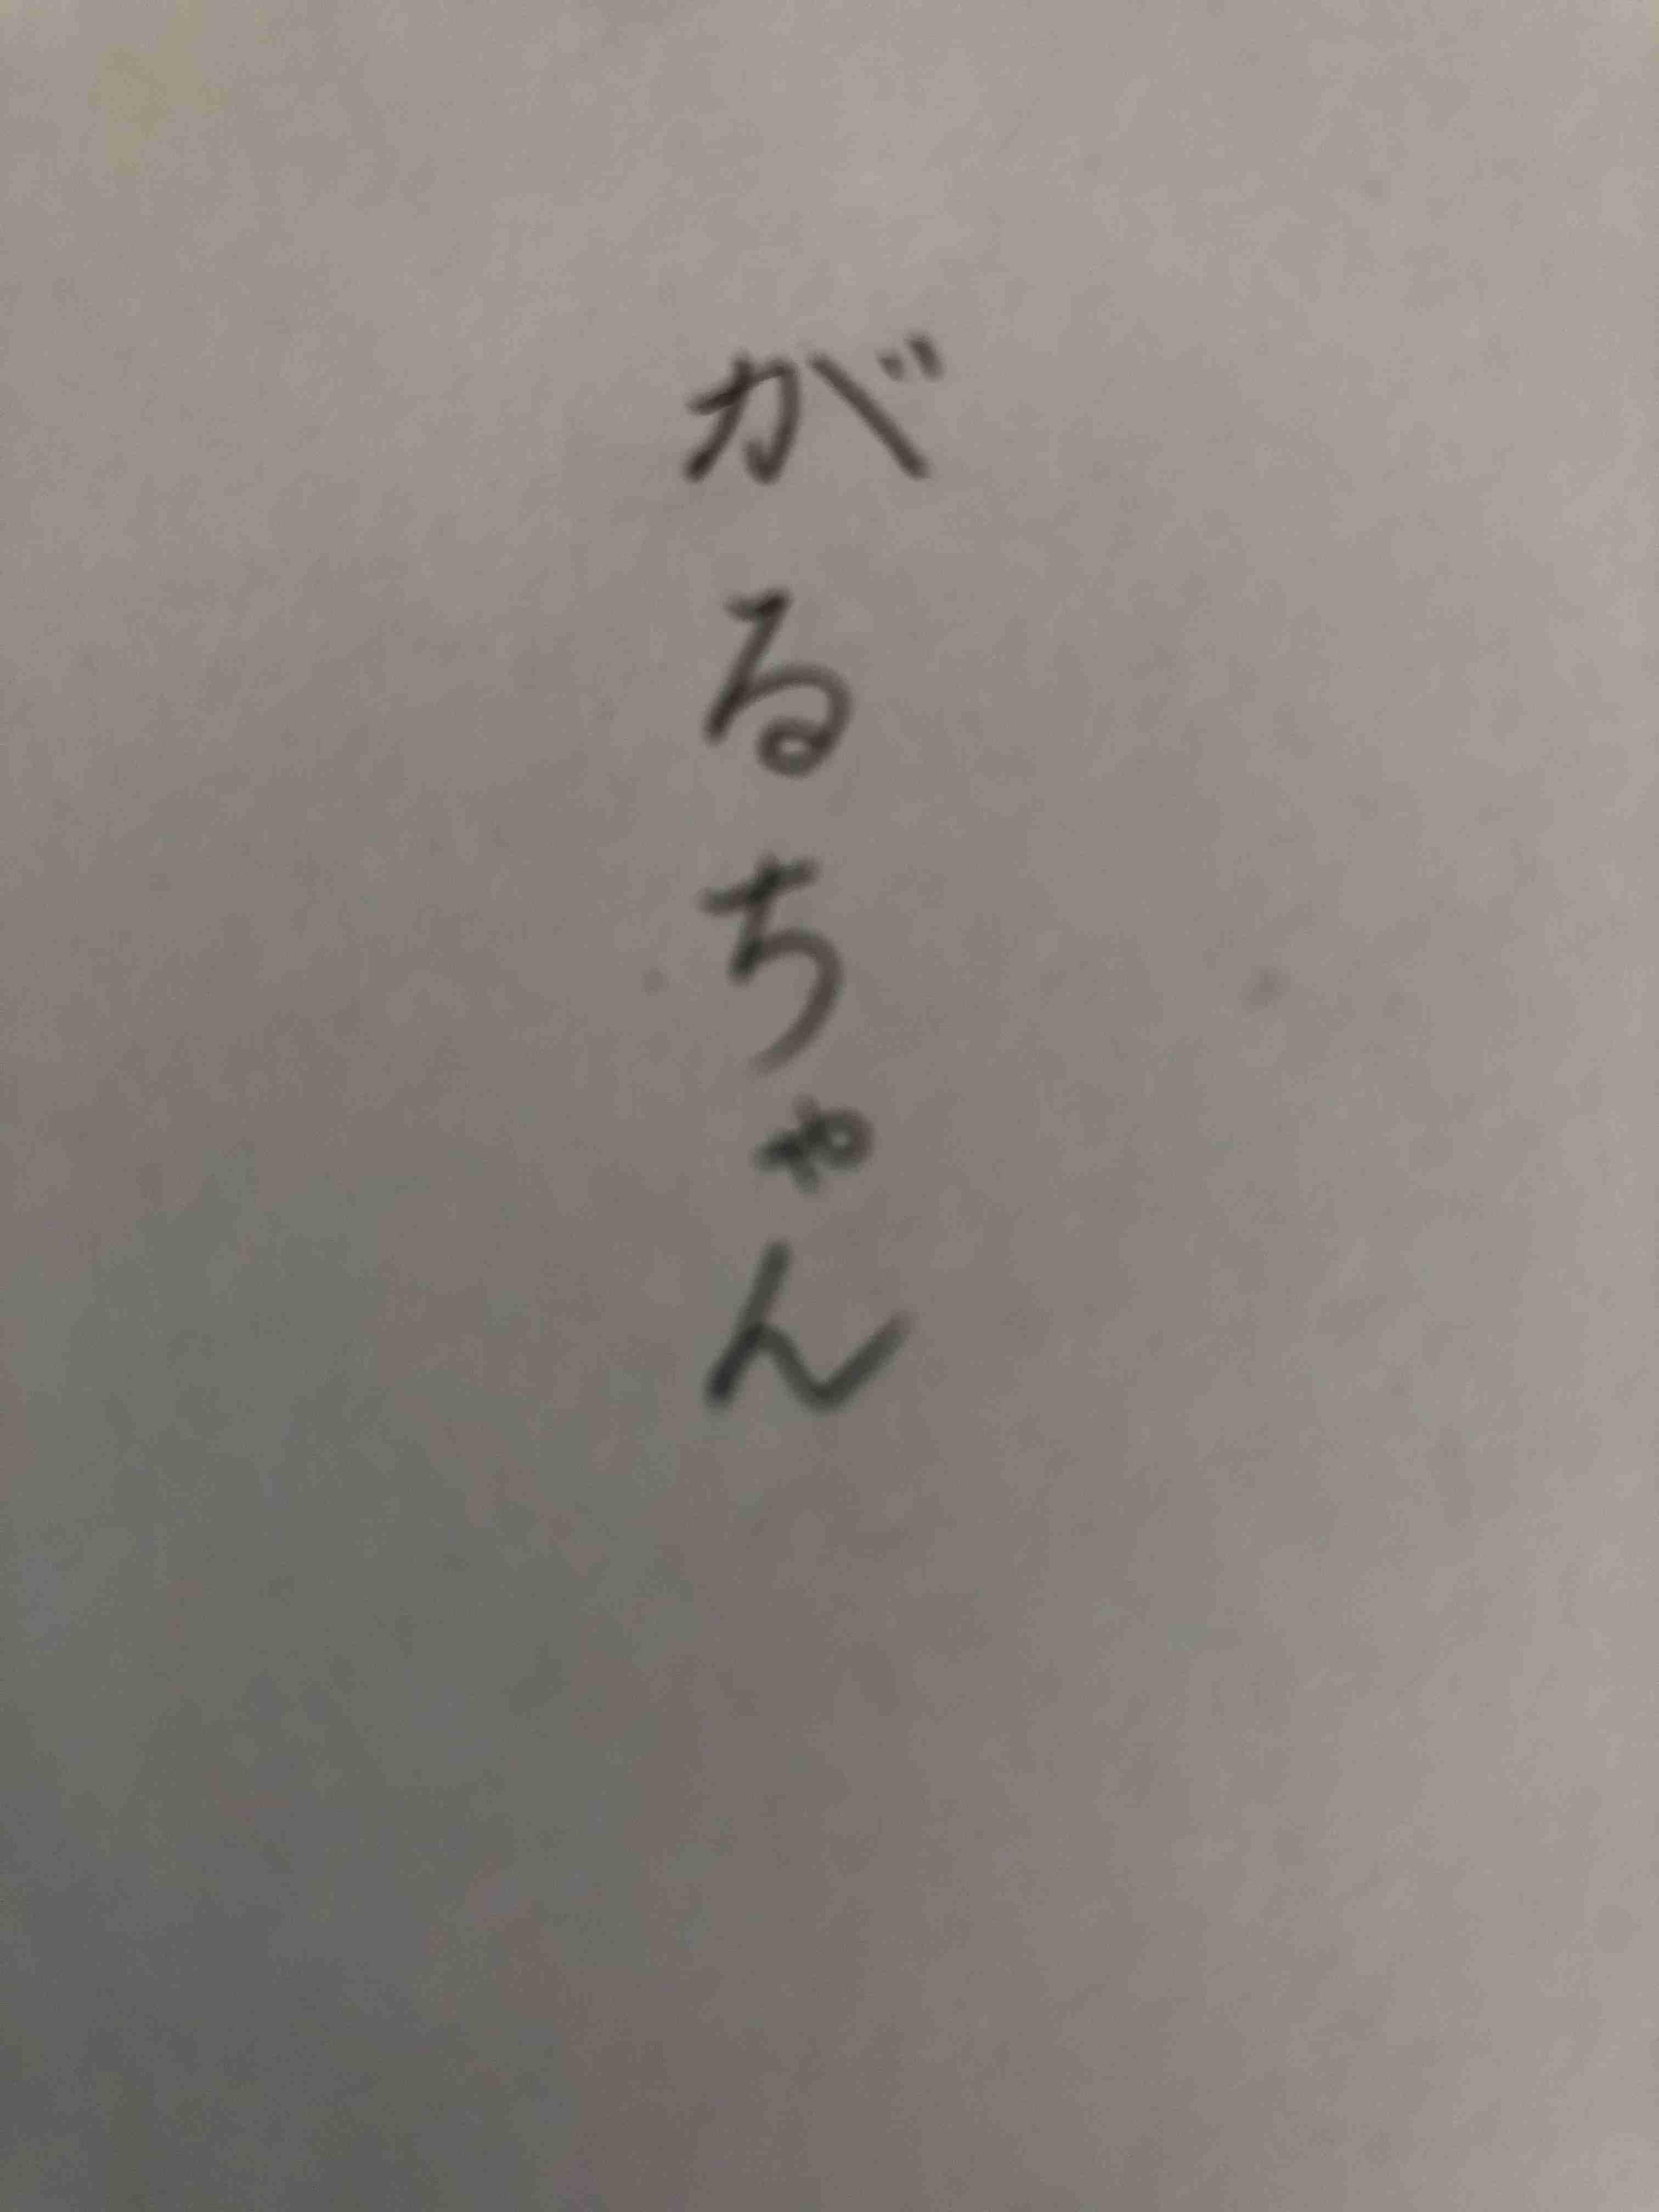 がるちゃん